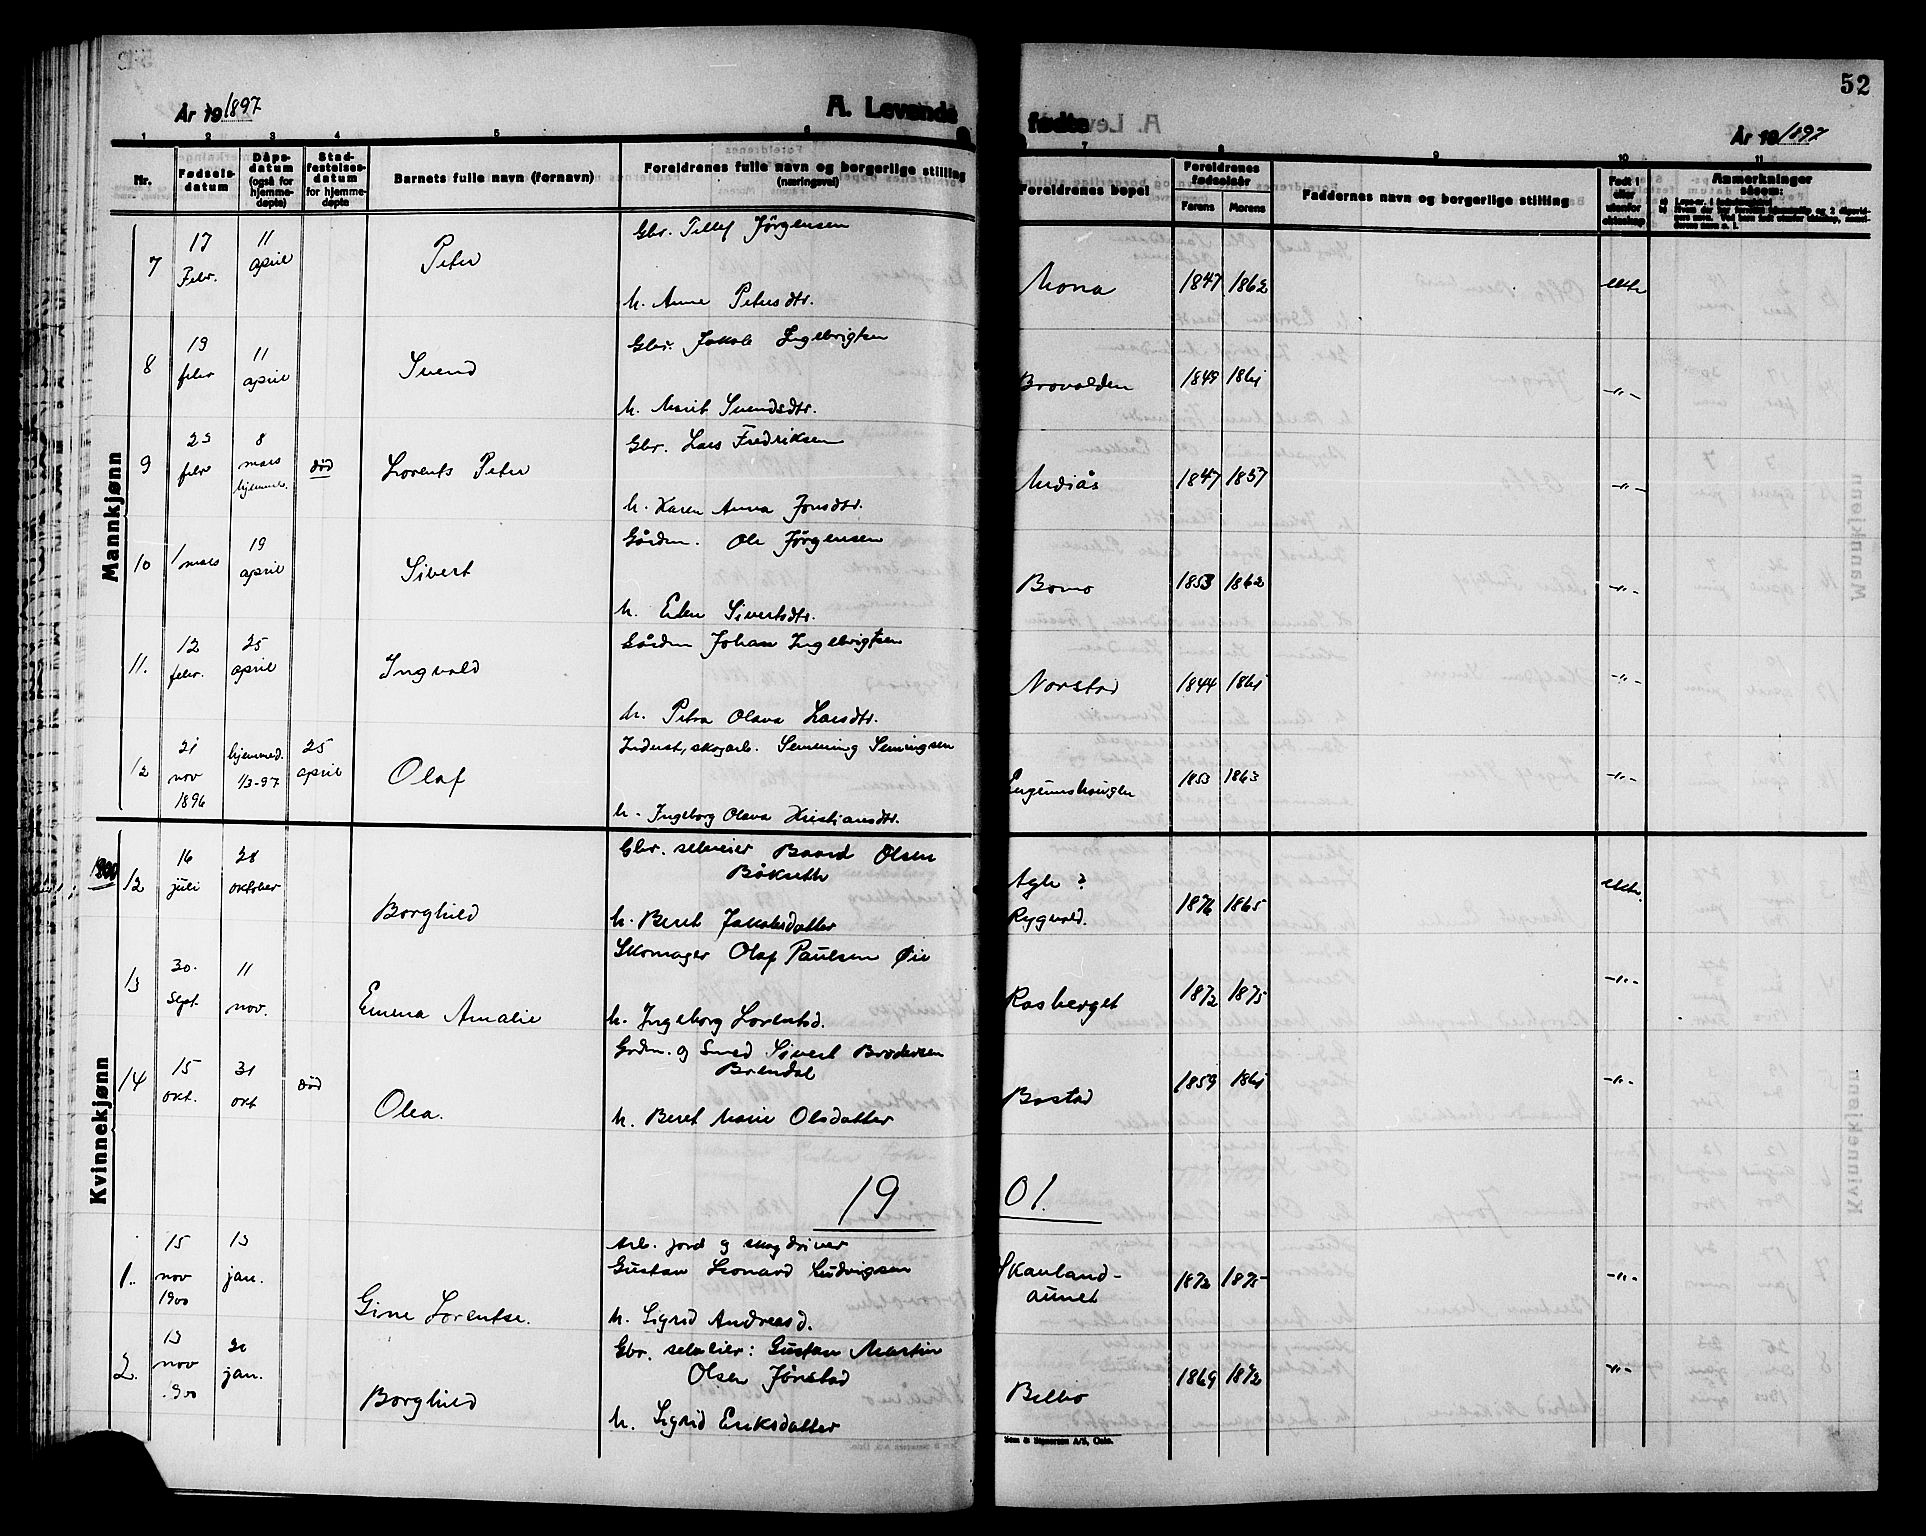 52
År 19 1897
A. Levende fødte
År 19 1897
1 2 3 4 5 6 7 8 9 10 11
Nr.
Fødsels-
datum
Dåps-
datum
(også for
hjemme-
døpte)
Stad-
festelses-
datum
for hjemme-
døpte
Barnets fulle navn (fornavn)
Foreldrenes fulle navn og borgerlige stilling
(næringsvei)
Foreldrenes bopel
Foreldrenes
fødselsår
Farens Morens
Faddernes navn og borgerlige stilling
Født i
eller
utenfor
ekteskap
Anmerkninger
såsom:
Mannkjønn
7 17 Febr. 11 april Peter Gbr. Tillef Jörgensen
h. Anne Petersdtr.
Mona 1847 1862 ekte
8 19 febr 11 april Svend Gbr. Jakob Ingebrigtsen
h. Marit Svendsdtr.
Brovolden 1849 1861 -"-
9 23 febr 8 mars hjemme. død Lorents Peter Gbr. Lars Fredriksen
h. Karen Anna Jonsdtr.
Mediås 1847 1857 -"-
10 1 mars 19 april Sivert Gårdm. Ole Jörgensen
h. Elen Sivertsdtr.
Bomo 1853 1862 -"-
11. 12 febr. 25 april Ingvald Gårdm Johan Ingebrigtsen
h. Petra Olava Larsdtr.
Norstad 1844 1861 -"-
12 21 nov 1896 hjemmed. 1/3-97 25 april Olaf Inderst, skogarb. Semming Semingsen
h. Ingeborg Olava Kristiansdtr.
1853 1863 -"-
Kvinnekjønn
1900
12 16 juli 28 oktober Borghild Gbr. selveier Baard Olsen
Böksetth
h. Beret Jakobsdatter
Agle ?
Rygvold.
1876 1865 ekte.
13 30. Sept. 11 nov. Emma Amalie Skomager Olaf Paulsen Øie
h. Ingeborg Lorentsd.
Rasberget 1872 1875 -"-
14 15 okt. 31 okt død Olea. Grdm. og Smed Sivert Brodersen
Brendal
h. Beret Marie Olsdatter
Bostad 1859 1861 -"-
1901.
1. 15 nov 1900 13 jan. Gine Lorentse. Arb. jord og skogdriver
Gustav Leonard Ludvigsen
h. Sigrid Andreasd.
Skauland-
aunet
1872 1875 -"-
2. 13 nov 1900 20 jan. Borghild Gbr. selveier: Gustav Martin
Olsen Jönstad
h. Sigrid Eriksdatter
Belbo 1869 1872 -"-
Sem & Stenersen A/S, Oslo.